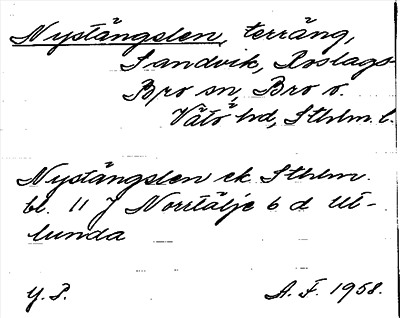 Nystängslen, terräng,
Sandvik, Roslags-
Bro sn, Bro o.
Vätö hd, Sthlm. l.
Nystängslen ek. Sthlm.
bl. 11 J Norrtälje 6 d Ut-
lunda
Y. P. A. F. 1958.